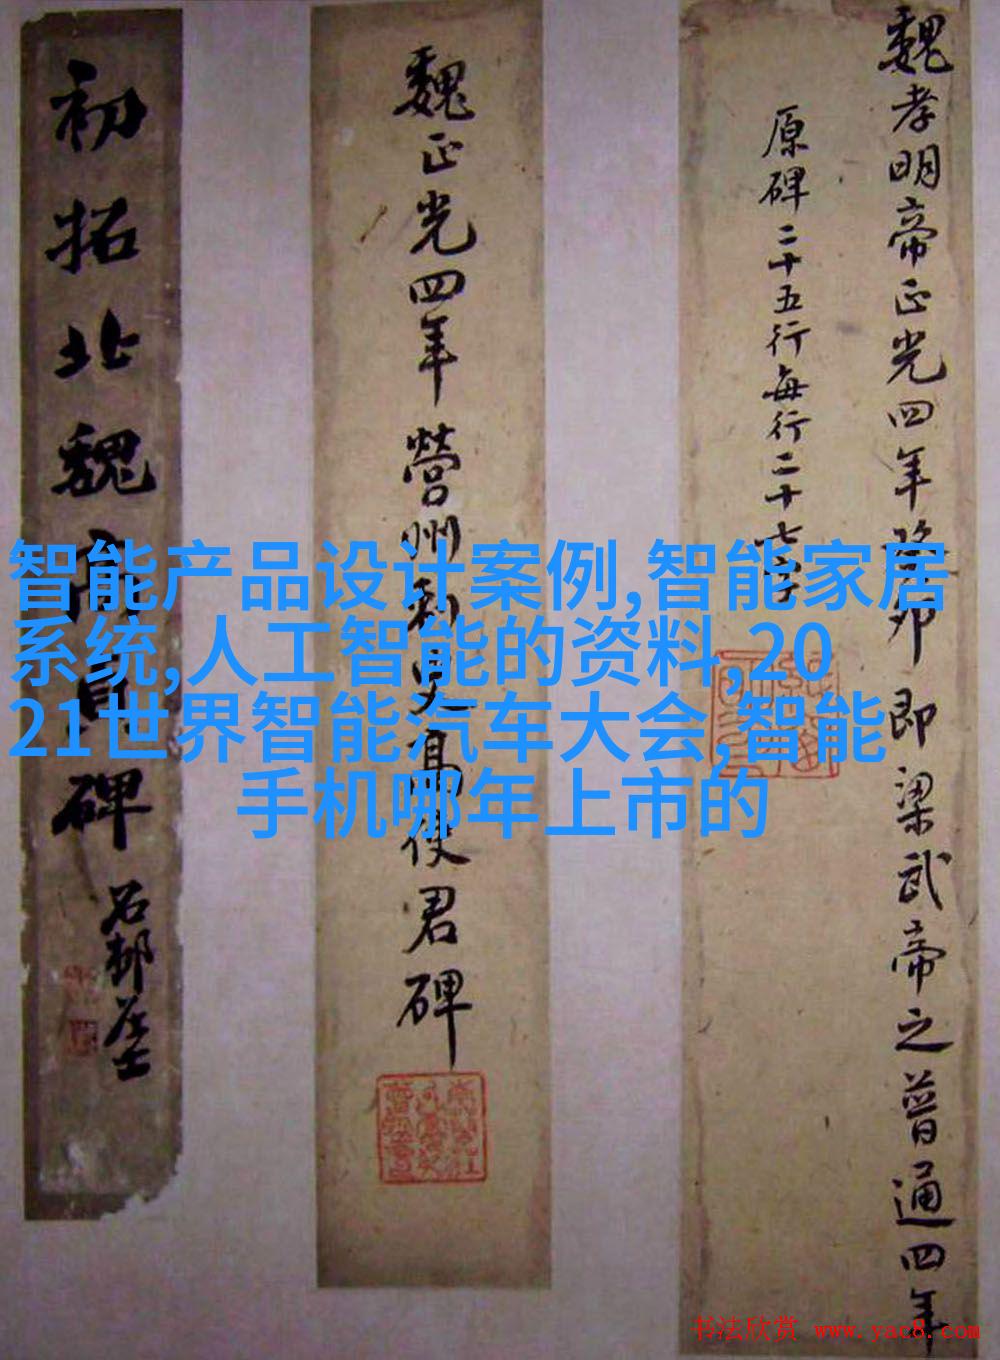 魏孝明帝正光四年癸卯即梁武帝之普通四年
原碑二十五行每行二十七字
魏正光四年營州刺史高使君碑
初拓北魏高貞碑
石邨居士
智能产品设计案例,智能家居
系统,人工智能的资料,20
21世界智能汽车大会,智能
手机哪年上市的
书法欣赏 www.yac8.com